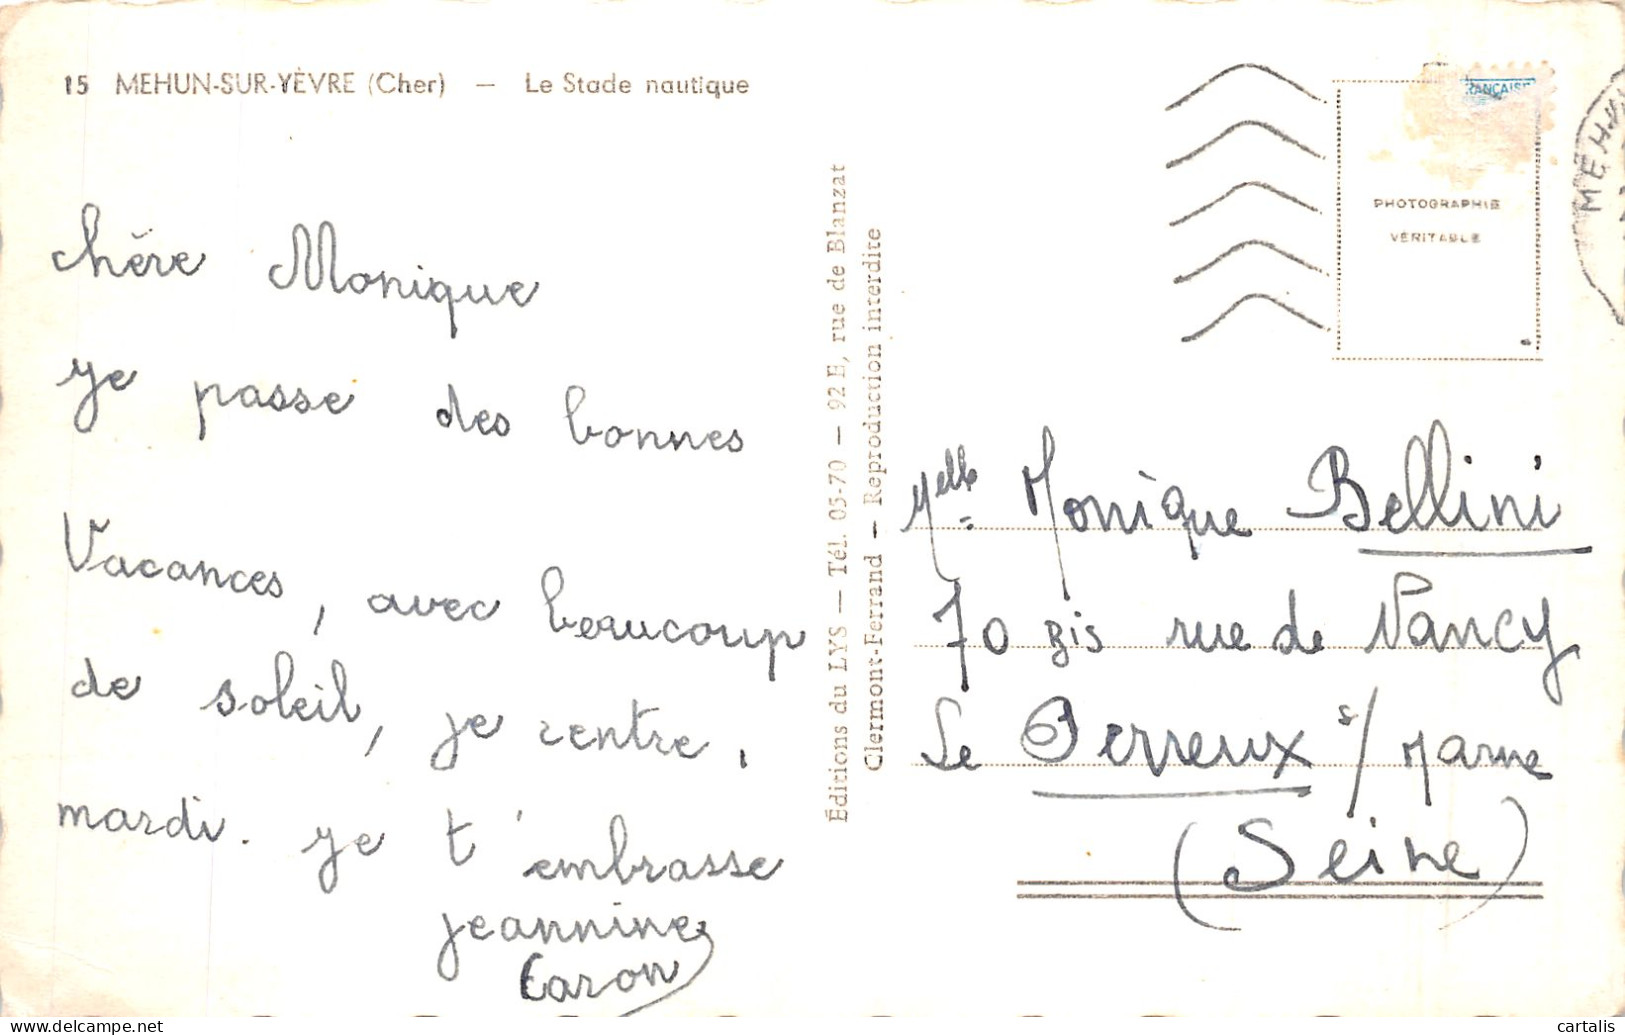 15 MEHUN-SUR-YÈVRE (Cher) — Le Stade nautique
chère Monique
je passe des bonnes
Vacances, avec beaucoup
de soleil, je rentre,
mardi. je t'embrasse
jeannine
Caron
Éditions du LYS — Tél. 05-70 — 92 E, rue de Blanzat
Clermont-Ferrand — Reproduction interdite
RANÇAISE
PHOTOGRAPHIE
VÉRITABLE
MEHUN
Melle Monique Bellini
70 Bis rue de Nancy
Le Perreux s/ Marne
(Seine)
cartalis
www.delcampe.net